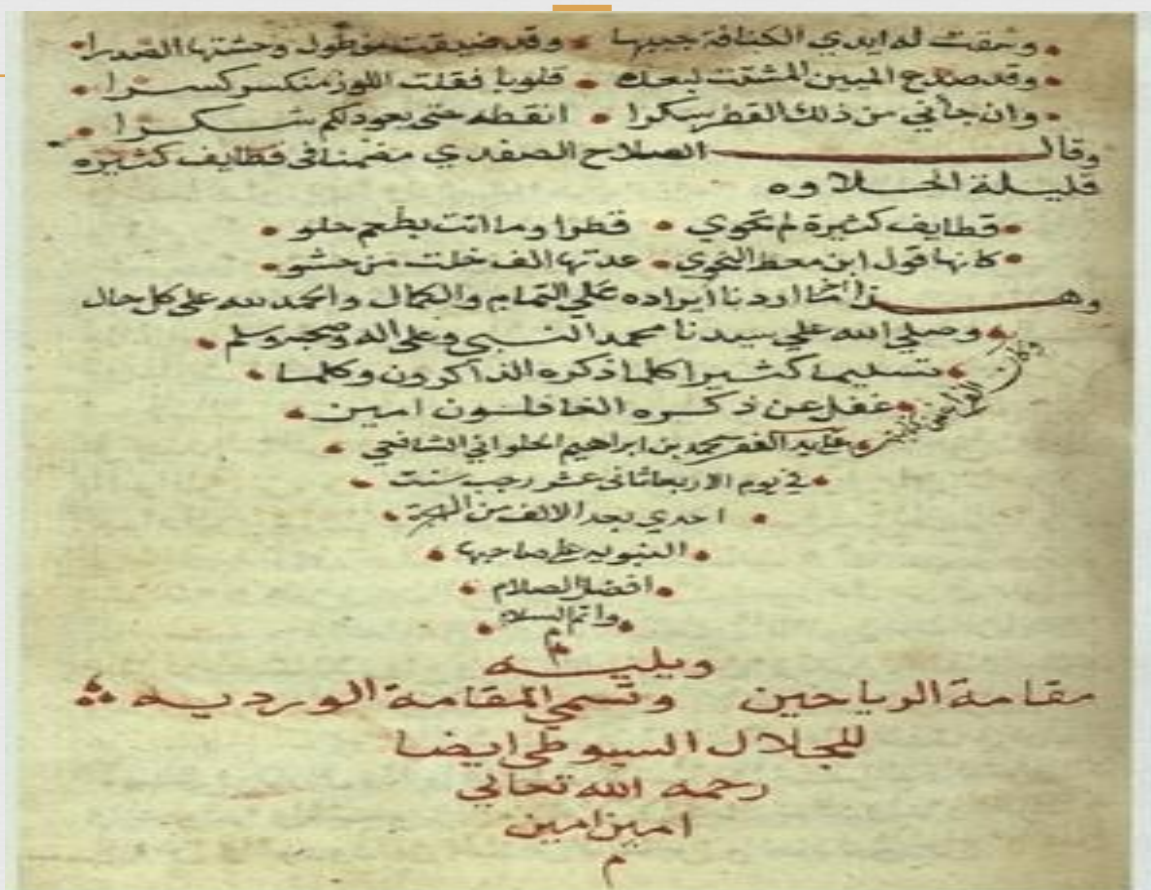 وشقت له ايدي الكنافة جيبها • وقد ضيقت من طول وحشتها الصدرا
وقد صدح المشتت لبعدك • قلوبا فقلت اللوز منكسر كسرا
وان جاني من ذلك القطر سكرا • انقطه حتى يعود لكم شكرا
وقال الصلاح الصفدي مضمنا في قطايف كثيره
قليلة الحلاوه
قطايف كثيرة لم تحوي • قطرا وما اتت بطعم حلو
كانها قول ابن معط النحوي • عدتها الف خلت من حشو
وهذا اخر ما اردنا ايراده علي التمام والكمال والحمد لله على كل حال
وصلي الله علي سيدنا محمد النبي وعلى اله وصحبه وسلم
تسليما كثيرا كلما ذكره الذاكرون وكلما
غفل عن ذكره الغافلون امين
وكان الفراغ من
على يد الفقير محمد بن ابراهيم الحلواني الشافعي
في يوم الاربعا ثاني عشر رجب سنت
احدي بعد الالف من الهجرة
النبويه على صاحبها
افضل الصلام
واتم السلام
م
ويليه
مقامة الرياحين وتسمي المقامة الورديه
للجلال السيوطي ايضا
رحمه الله تعالي
امين امين
م